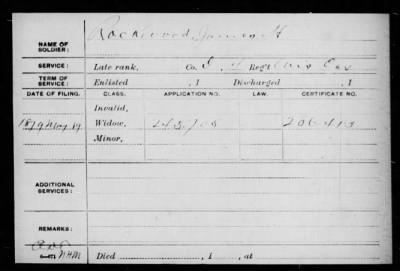 Rockwood, James H
NAME OF SOLDIER:
SERVICE: Late rank, Co. Reg't Ohio Cav
TERM OF SERVICE: Enlisted , 1 Discharged , 1
DATE OF FILING. CLASS. APPLICATION NO. LAW. CERTIFICATE NO.
Invalid,
1879 May 19 Widow, 245,705 206413
Minor,
ADDITIONAL SERVICES:
REMARKS:
Died , 1 , at